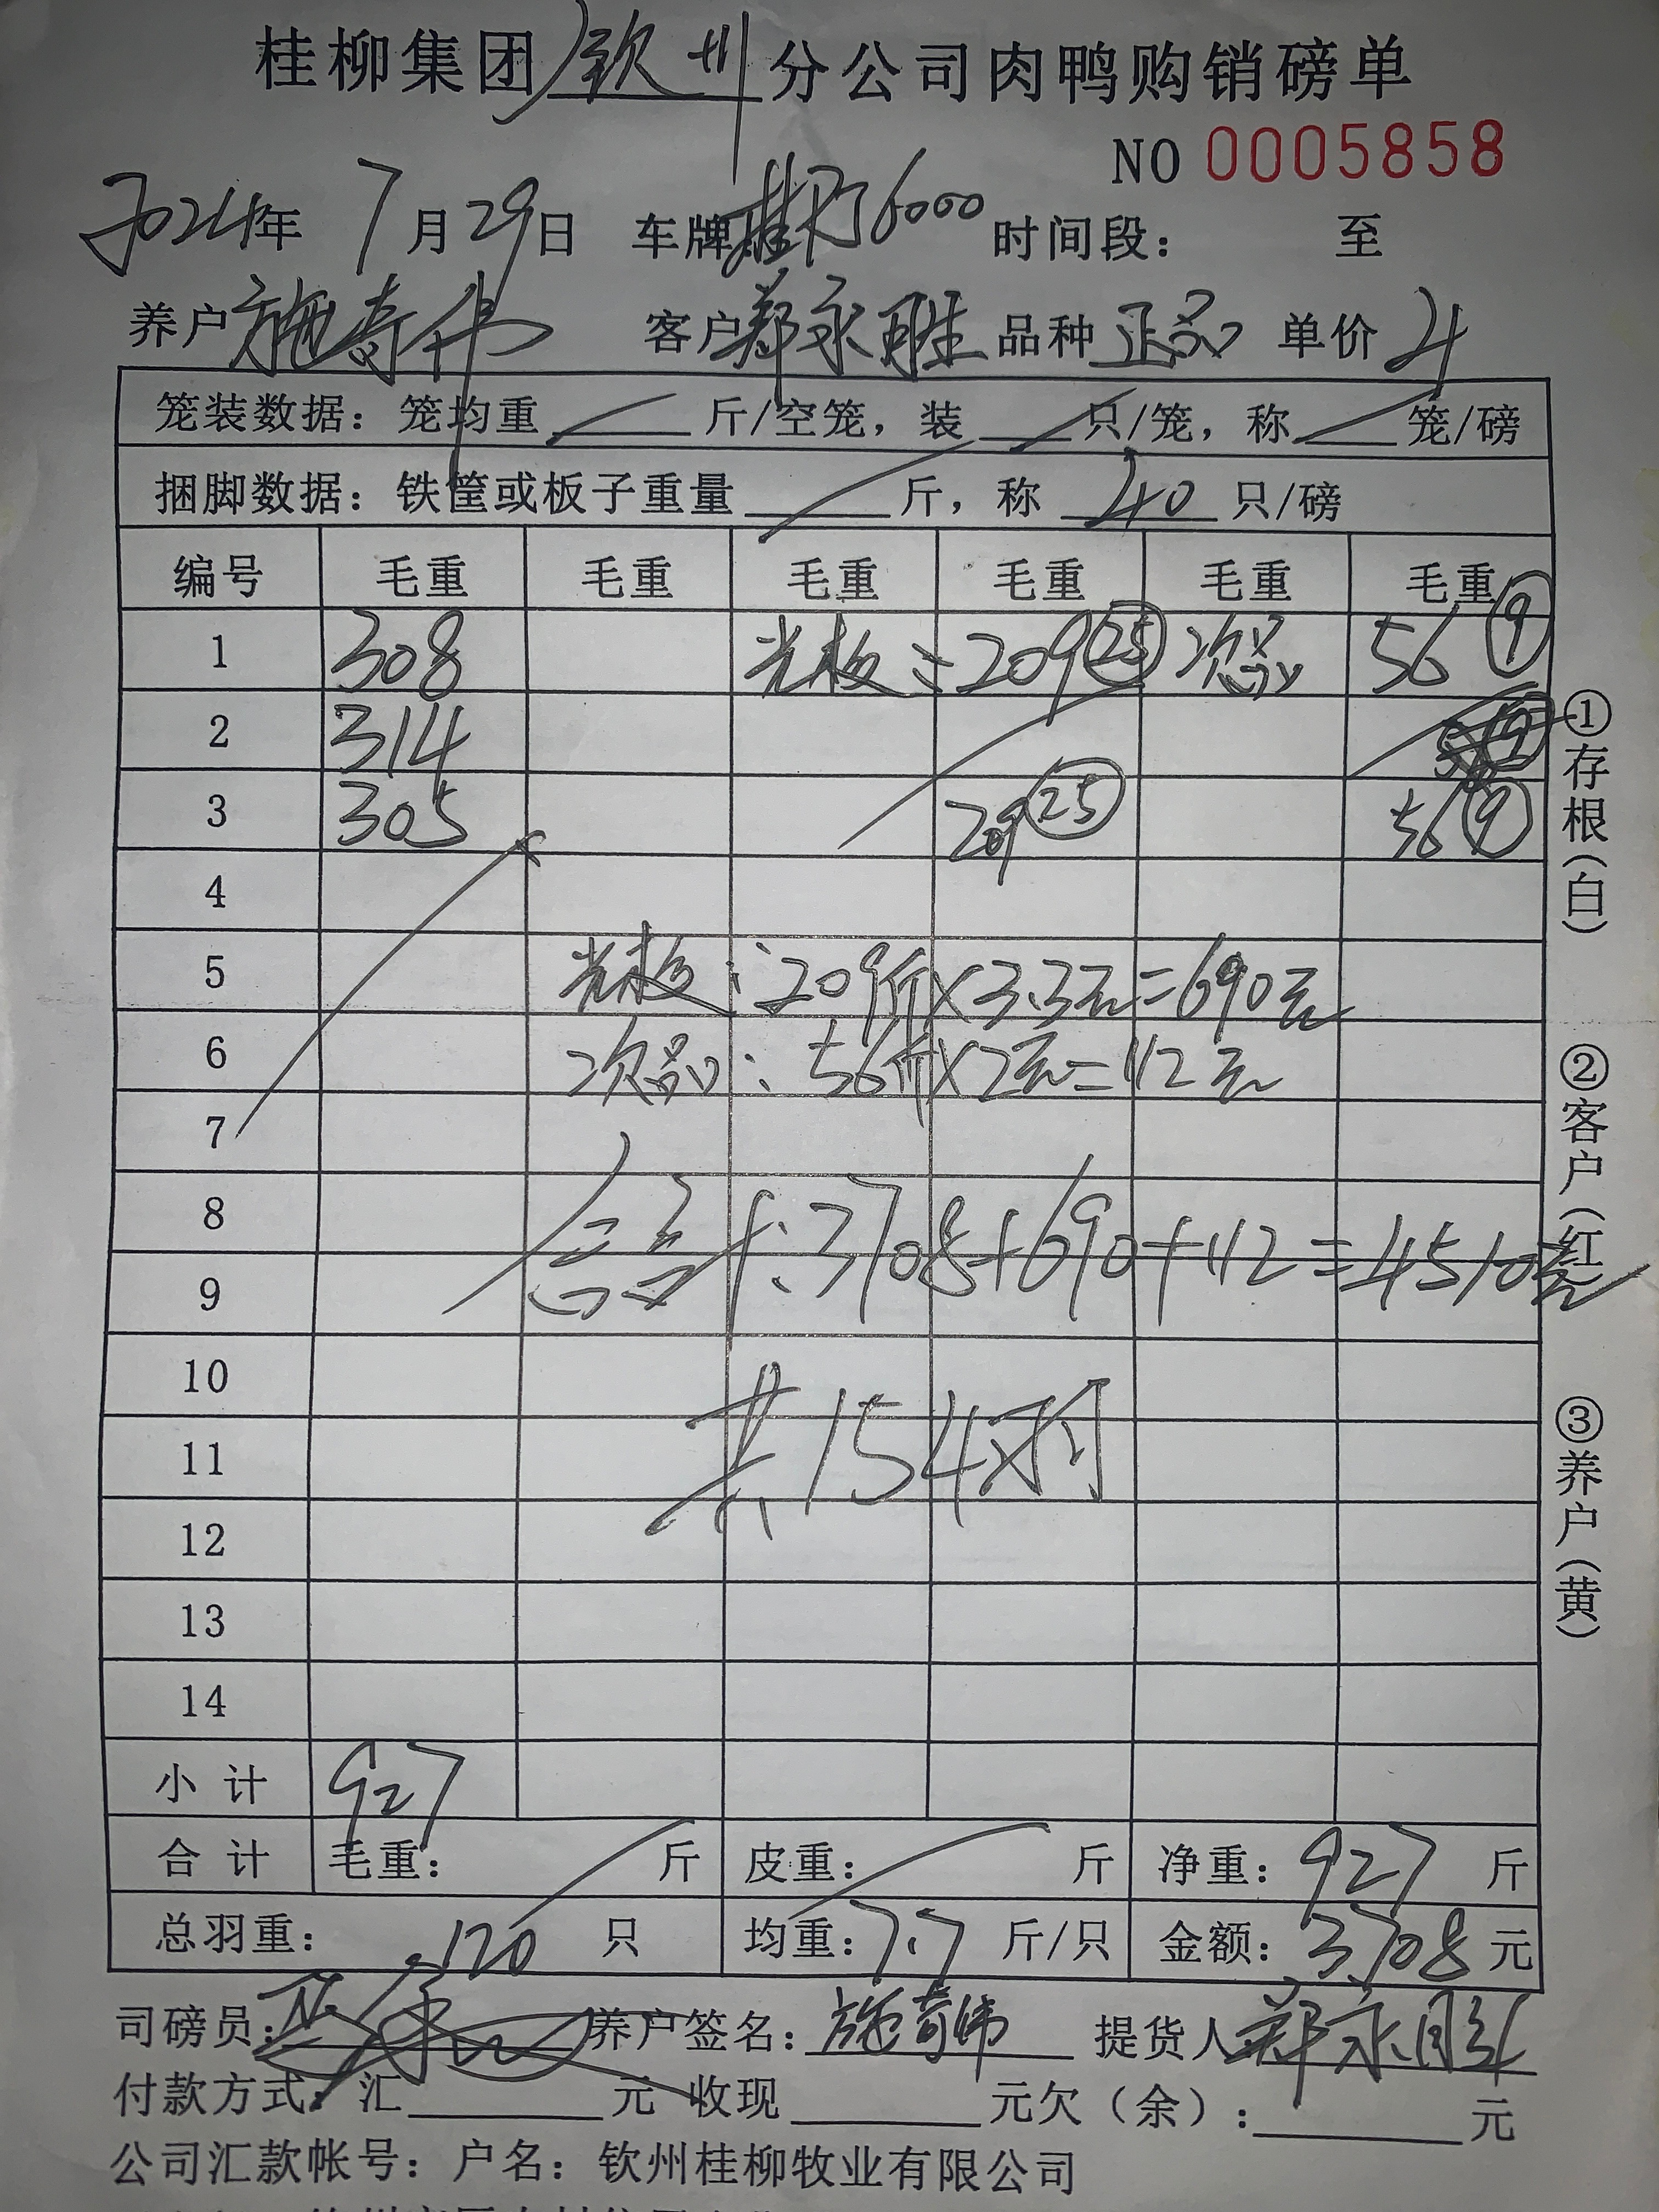 桂柳集团钦州分公司肉鸭购销磅单
NO 0005858
2024年 7月29日 车牌桂 6000 时间段： 至
养户施奇伟 客户郑永胜 品种正品 单价4
笼装数据：笼均重 斤/空笼，装 只/笼，称 笼/磅
捆脚数据：铁筐或板子重量 斤，称 40 只/磅
编号 毛重 毛重 毛重 毛重 毛重 毛重
1 308 光板：209 25 次品 56 9
2 314
3 305 209 25 56 9
4
5 光板：209斤×3.3元=690元
6 次品：56斤×2元=112元
7
8 合计：3708+690+112=4510元
9
10
11 共154羽
12
13
14
小计 927
合计 毛重： 斤 皮重： 斤 净重：927斤
总羽重：120 只 均重：7.7斤/只 金额：3708元
司磅员： 养户签名：施奇伟 提货人郑永胜
付款方式：汇 元 收现 元欠（余）： 元
公司汇款帐号：户名：钦州桂柳牧业有限公司
①存根（白）
②客户（红）
③养户（黄）